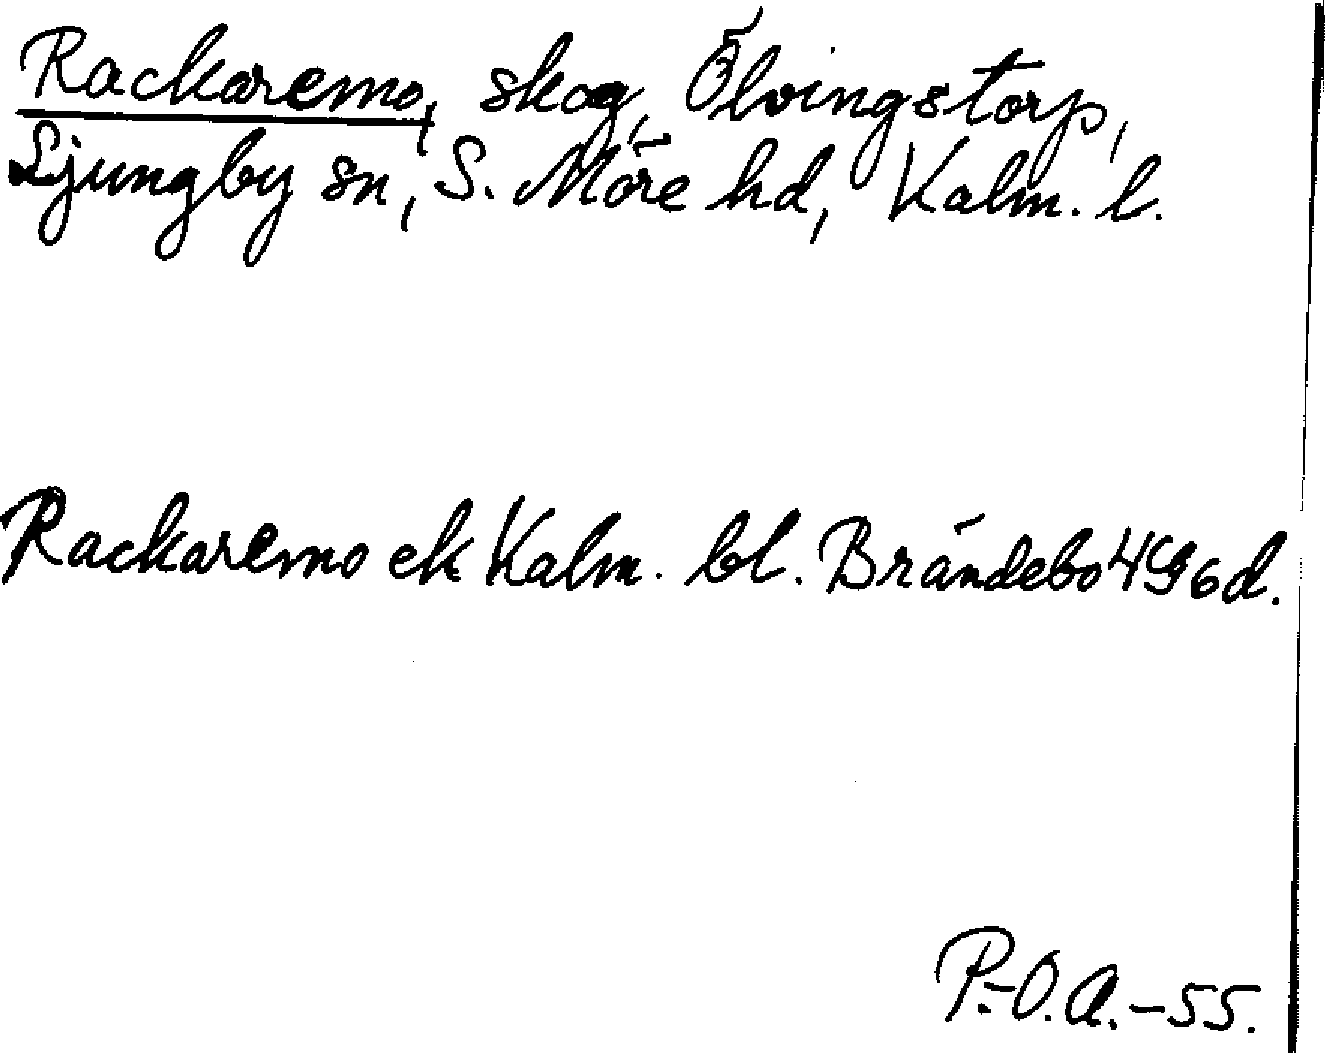 Rackaremo, skog, Ölvingstorp,
Ljungby sn, S. Möre hd, Kalm. l.
Rackaremo ek Kalm. bl. Brändebo 4G6d.
P.-O.A.-55.